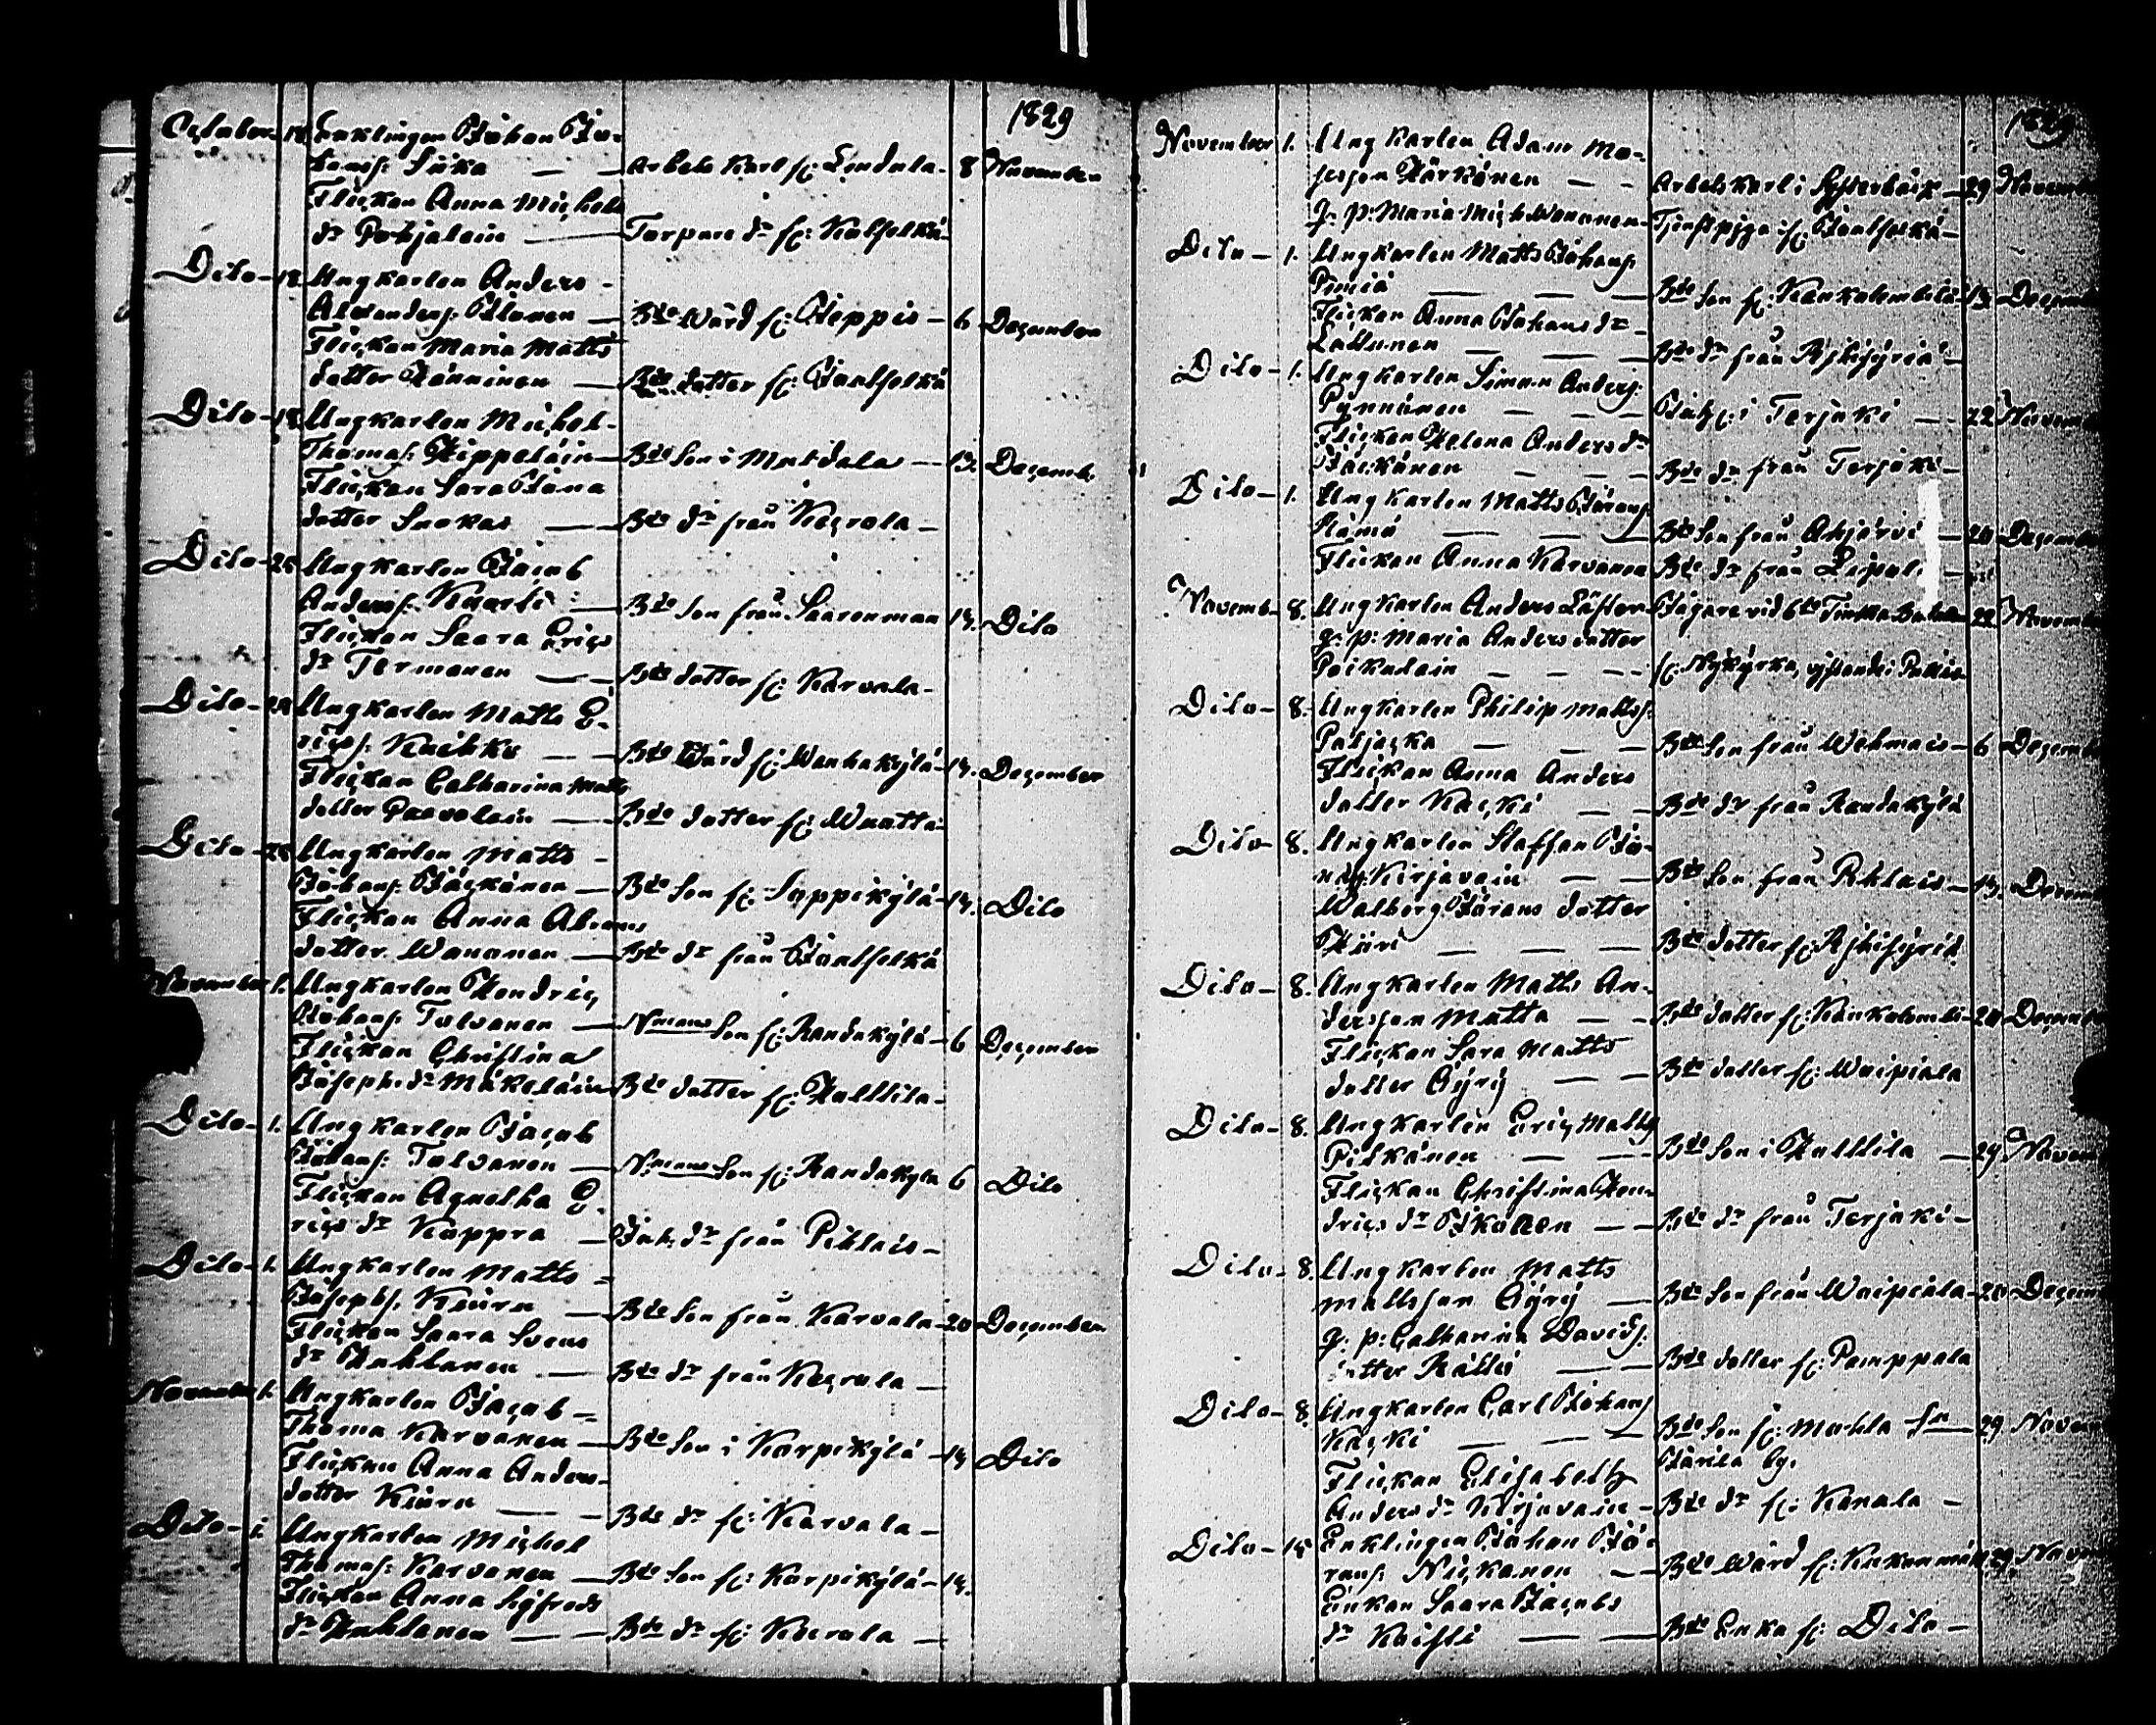 1829
October 18 Enklingen Johan Jo-
hans: Suka — — Arbets Karl fr: Lindula 8 November
Flickan Anna Michels
dr Pohjalain — Torpare dr fr:
Dito 18 Ungkarlen Anders
Alexanders: Ilonen — Bde Wärd fr: Seppis 6 December
Flickan Maria Matts
dotter Jänninen — Bde dotter fr: Joutselkä
Dito 18 Ungkarlen Michel
Thomas: Hippeläin — Bde Son i 13. Decemb.
Flickan Sara Jöns
dotter — Bde dr från Kacrola
Dito 25 Ungkarlen Jacob
Anders: Kaarli — Bde Son från Saarenmaa 13. Dito
Flickan Saara Erics
dr Termonen — Bde dotter fr: Karvala
Dito 25 Ungkarlen Matts E-
rics: Kaikko — — Bde Wärd fr: Wanhakylä 13. December
Flickan Catharina Matts
dotter Paavolain — Bde dotter fr:
Dito 25 Ungkarlen Matts
Johans: Jäskänen — Bde Son fr: Seppikylä 13. Dito
Flickan Anna Abrams
dotter Wananen — Bde dr från Joutselkä
November 1. Ungkarlen Hendric
Johans: Tolvanen — Nmans Son fr: Randakylä 6 December
Flickan Christina
Josephs dr Mäkeläin Bde dotter fr: Halltila
Dito 1. Ungkarlen Jacob
Johans: Tolvanen — Nmans Son fr: Randakyla 6 Dito
Flickan Agnetha E-
rics dr Kappra — Inh: dr från Pihlais
Dito 1. Ungkarlen Matts
Josephs: Kiuru — Bde Son från Karvala 20 December
Flickan Saara Svens
dr Huhtanen — Bde dr från Kacrola —
November 1. Ungkarlen Jacob
Thoma Karvanen — Bde Son i Karpikylä 13 Dito
Flickan Anna Anders
dotter Kiuru — Bde dr fr: Karvala —
Dito 1. Ungkarlen Michel
Thomas: Karvanen — Bde Son fr: Karpikylä 13.
Flickan Anna Sigfreds
dr Huhtanen — — Bde dr fr: Kacrola —
1829
November 1. Ungkarlen Adam Mo-
sesson Kärkänen — — Arbetskarl i Systerbäck 29 November
q. p: Maria Mich: Wananen Tjenstpiga i fr: Joutselkä
Dito 1. Ungkarlen Matts Johans:
Pimiä — — Bde Son fr: 13. December
Flickan Anna Johans dr
Lattunen — — Bde dr från
Dito 1. Ungkarlen Simon Anders:
Pynnönen — — Inh: i Terjoki — 22 November
Flickan Helena Anders dr
Jäskänen — — Bde dr från Terjoki
Dito 1. Ungkarlen Matts Jörans:
Rämä — — Bde Son från Ahjärvi — 20 December
Flickan Anna Karvanen Bde dr från
Novemb. 8. Ungkarlen Anders Löfstr: Jägare vid 6te Finska 22 November
q. p: Maria Anders dotter
Poikalain — — fr: Nykyrka,
Dito 8. Ungkarlen Philip Matts:
— — Bde Son från Wehmais 6 December
Flickan Anna Anders
dotter Käcki — — Bde dr från Randakylä
Dito 8. Ungkarlen Staffan Jö-
rans: Kirjavain — — Bde Son från Pihlais 13. December
Walborg Jörans dotter
Kiuri — — Bde dotter fr:
Dito 8. Ungkarlen Matts An-
dersson Matta — — Bde dotter fr: 20 December
Flickan Sara Matts
dotter Äyry — — Bde dotter fr: Waipiala
Dito 8. Ungkarlen Eric Matts:
Pitkänen — — Bde Son i Halltila — 29 November
Flickan Christina Hen-
drics dr Ikonen — — Bde dr från Terjoki
Dito 8. Ungkarlen Matts
Mattsson Äyry — Bde Son från Waipiala 20 December
q. p: Catharina Davids:
dotter Rätti — — Bde dotter fr: Pamppala
Dito 8. Ungkarlen Carl Johans:
Käcki — — Bde Son fr: Mohla Sn 29 November
Järila by.
Flickan Elisabeth
Anders dr Kirjavain — Bde dr fr: Kanala —
Dito 15 Enklingen Johan Jö-
rans: Nickanen — — Bde Wärd fr: 29. November
Enkan Saara Jacobs
dr Koisti — — Bde Enka fr: Dito —